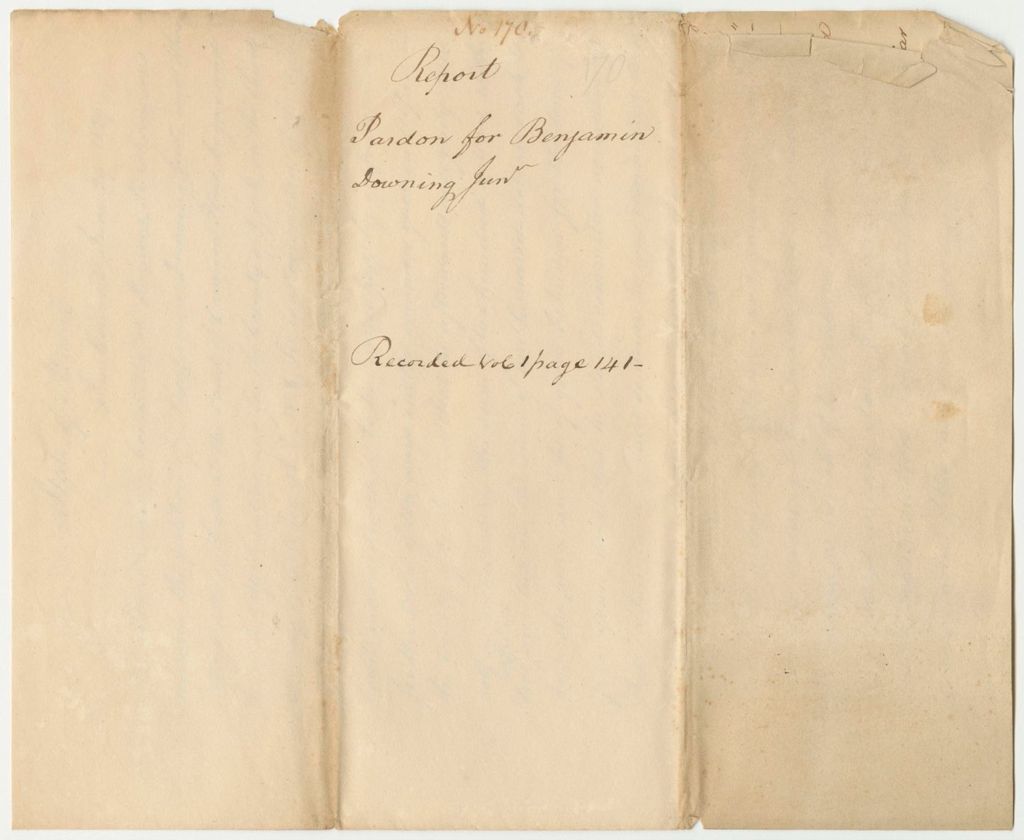 No 170.
Report
170
Pardon for Benjamin
Downing Junr
Recorded Vol 1 page 141-